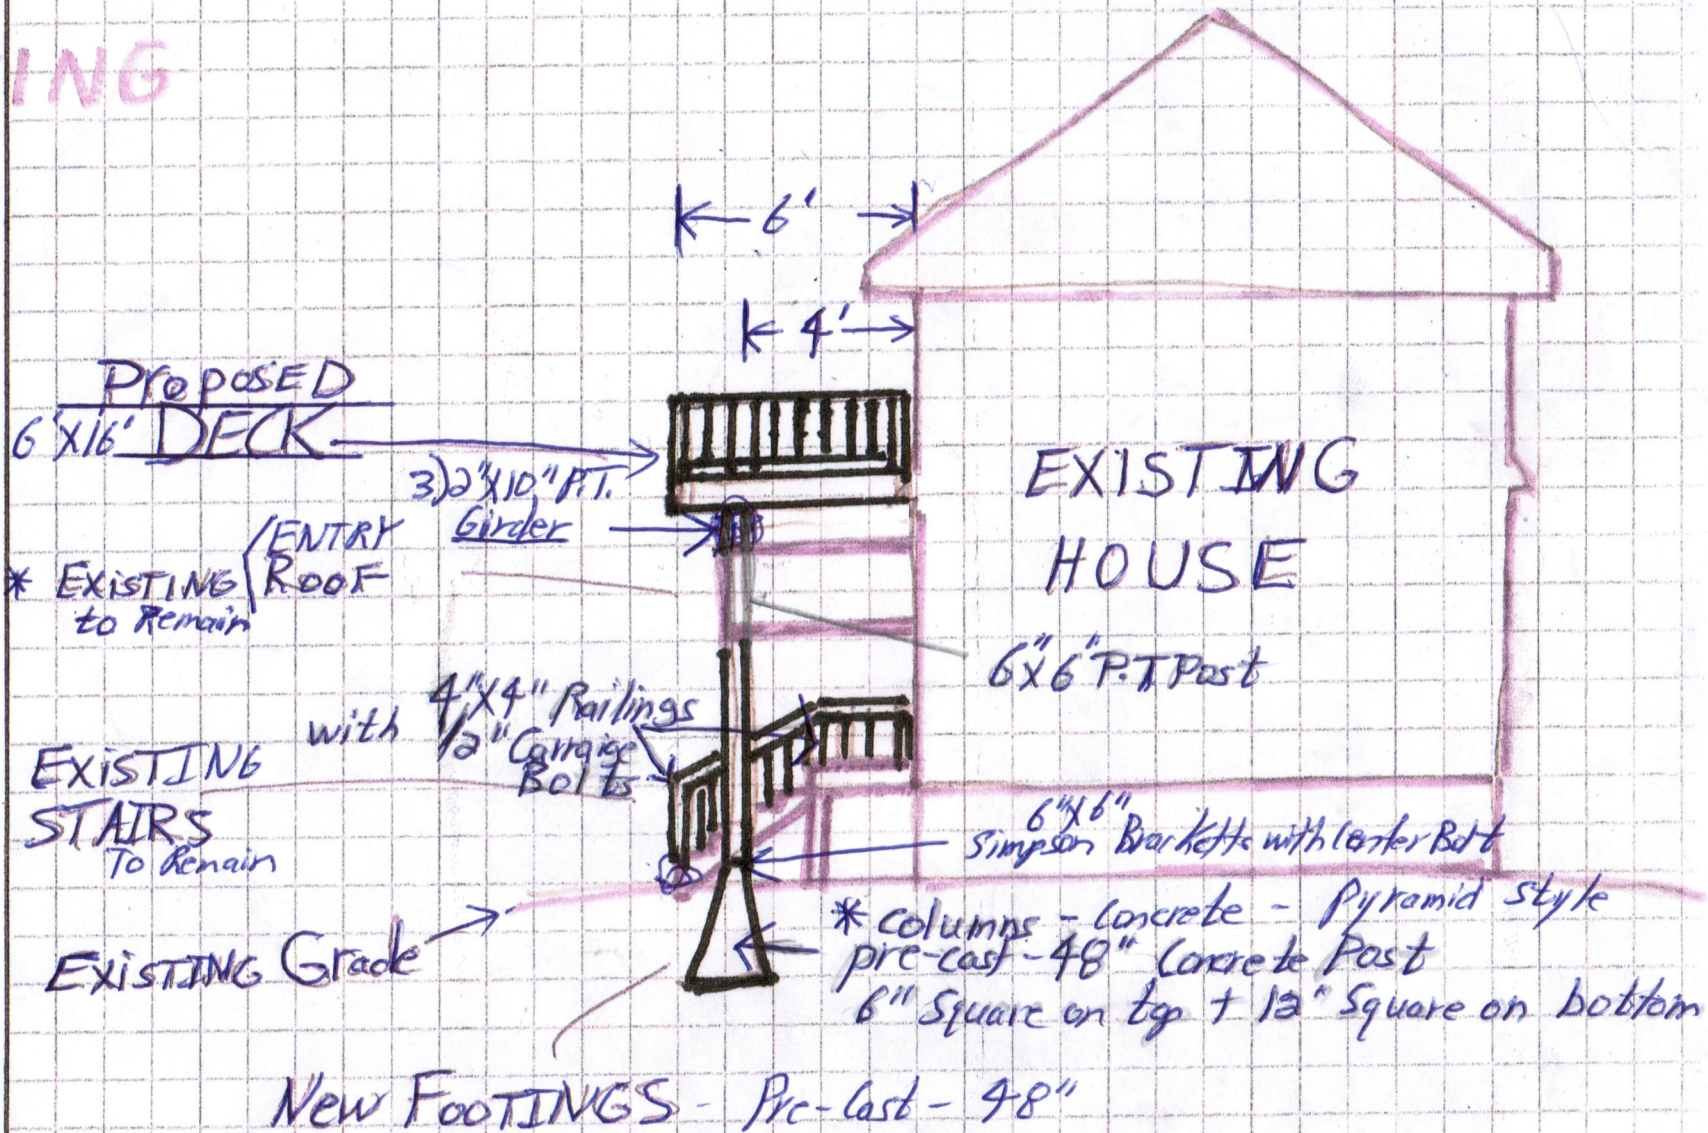 ING
6'
4'
PropoSED
6'X16' DECK
3)2"X10" P.T.
Girder
ENTRY
* EXiSTING ROOF
to Remain
EXISTING
HOUSE
6"X6" P.T Post
4"X4" Railings
with 1/2" Carraige
Bolts
EXiSTING
STAIRS
To Remain
6"X6"
Simpson Bracketts with Center Bolt
EXiSTING Grade
* Columns - Concrete - Pyramid style
pre-cast - 48" Concrete Post
6" Square on top + 12" Square on bottom
New FOOTINGS - Pre-Cast - 48"